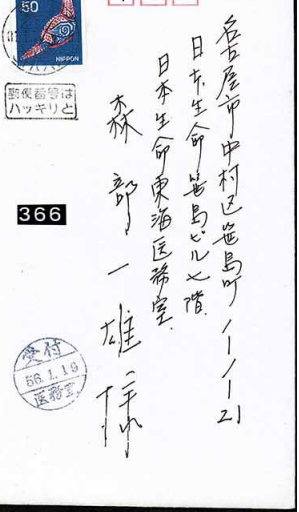 50
NIPPON
郵便番号は
ハッキリと
名古屋市中村区笹島町1-1-21
日本生命笹島ビル七階
日本生命東海医務室
森部一雄様
366
受付
56.1.19
医務室